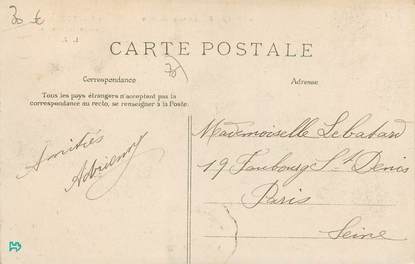 30 €
CARTE POSTALE
Correspondance
Tous les pays étrangers n'acceptent pas la
correspondance au recto, se renseigner à la Poste.
Adresse
Amitiés
Mademoiselle Lebatard
19 Faubourg St Denis
Paris
Seine